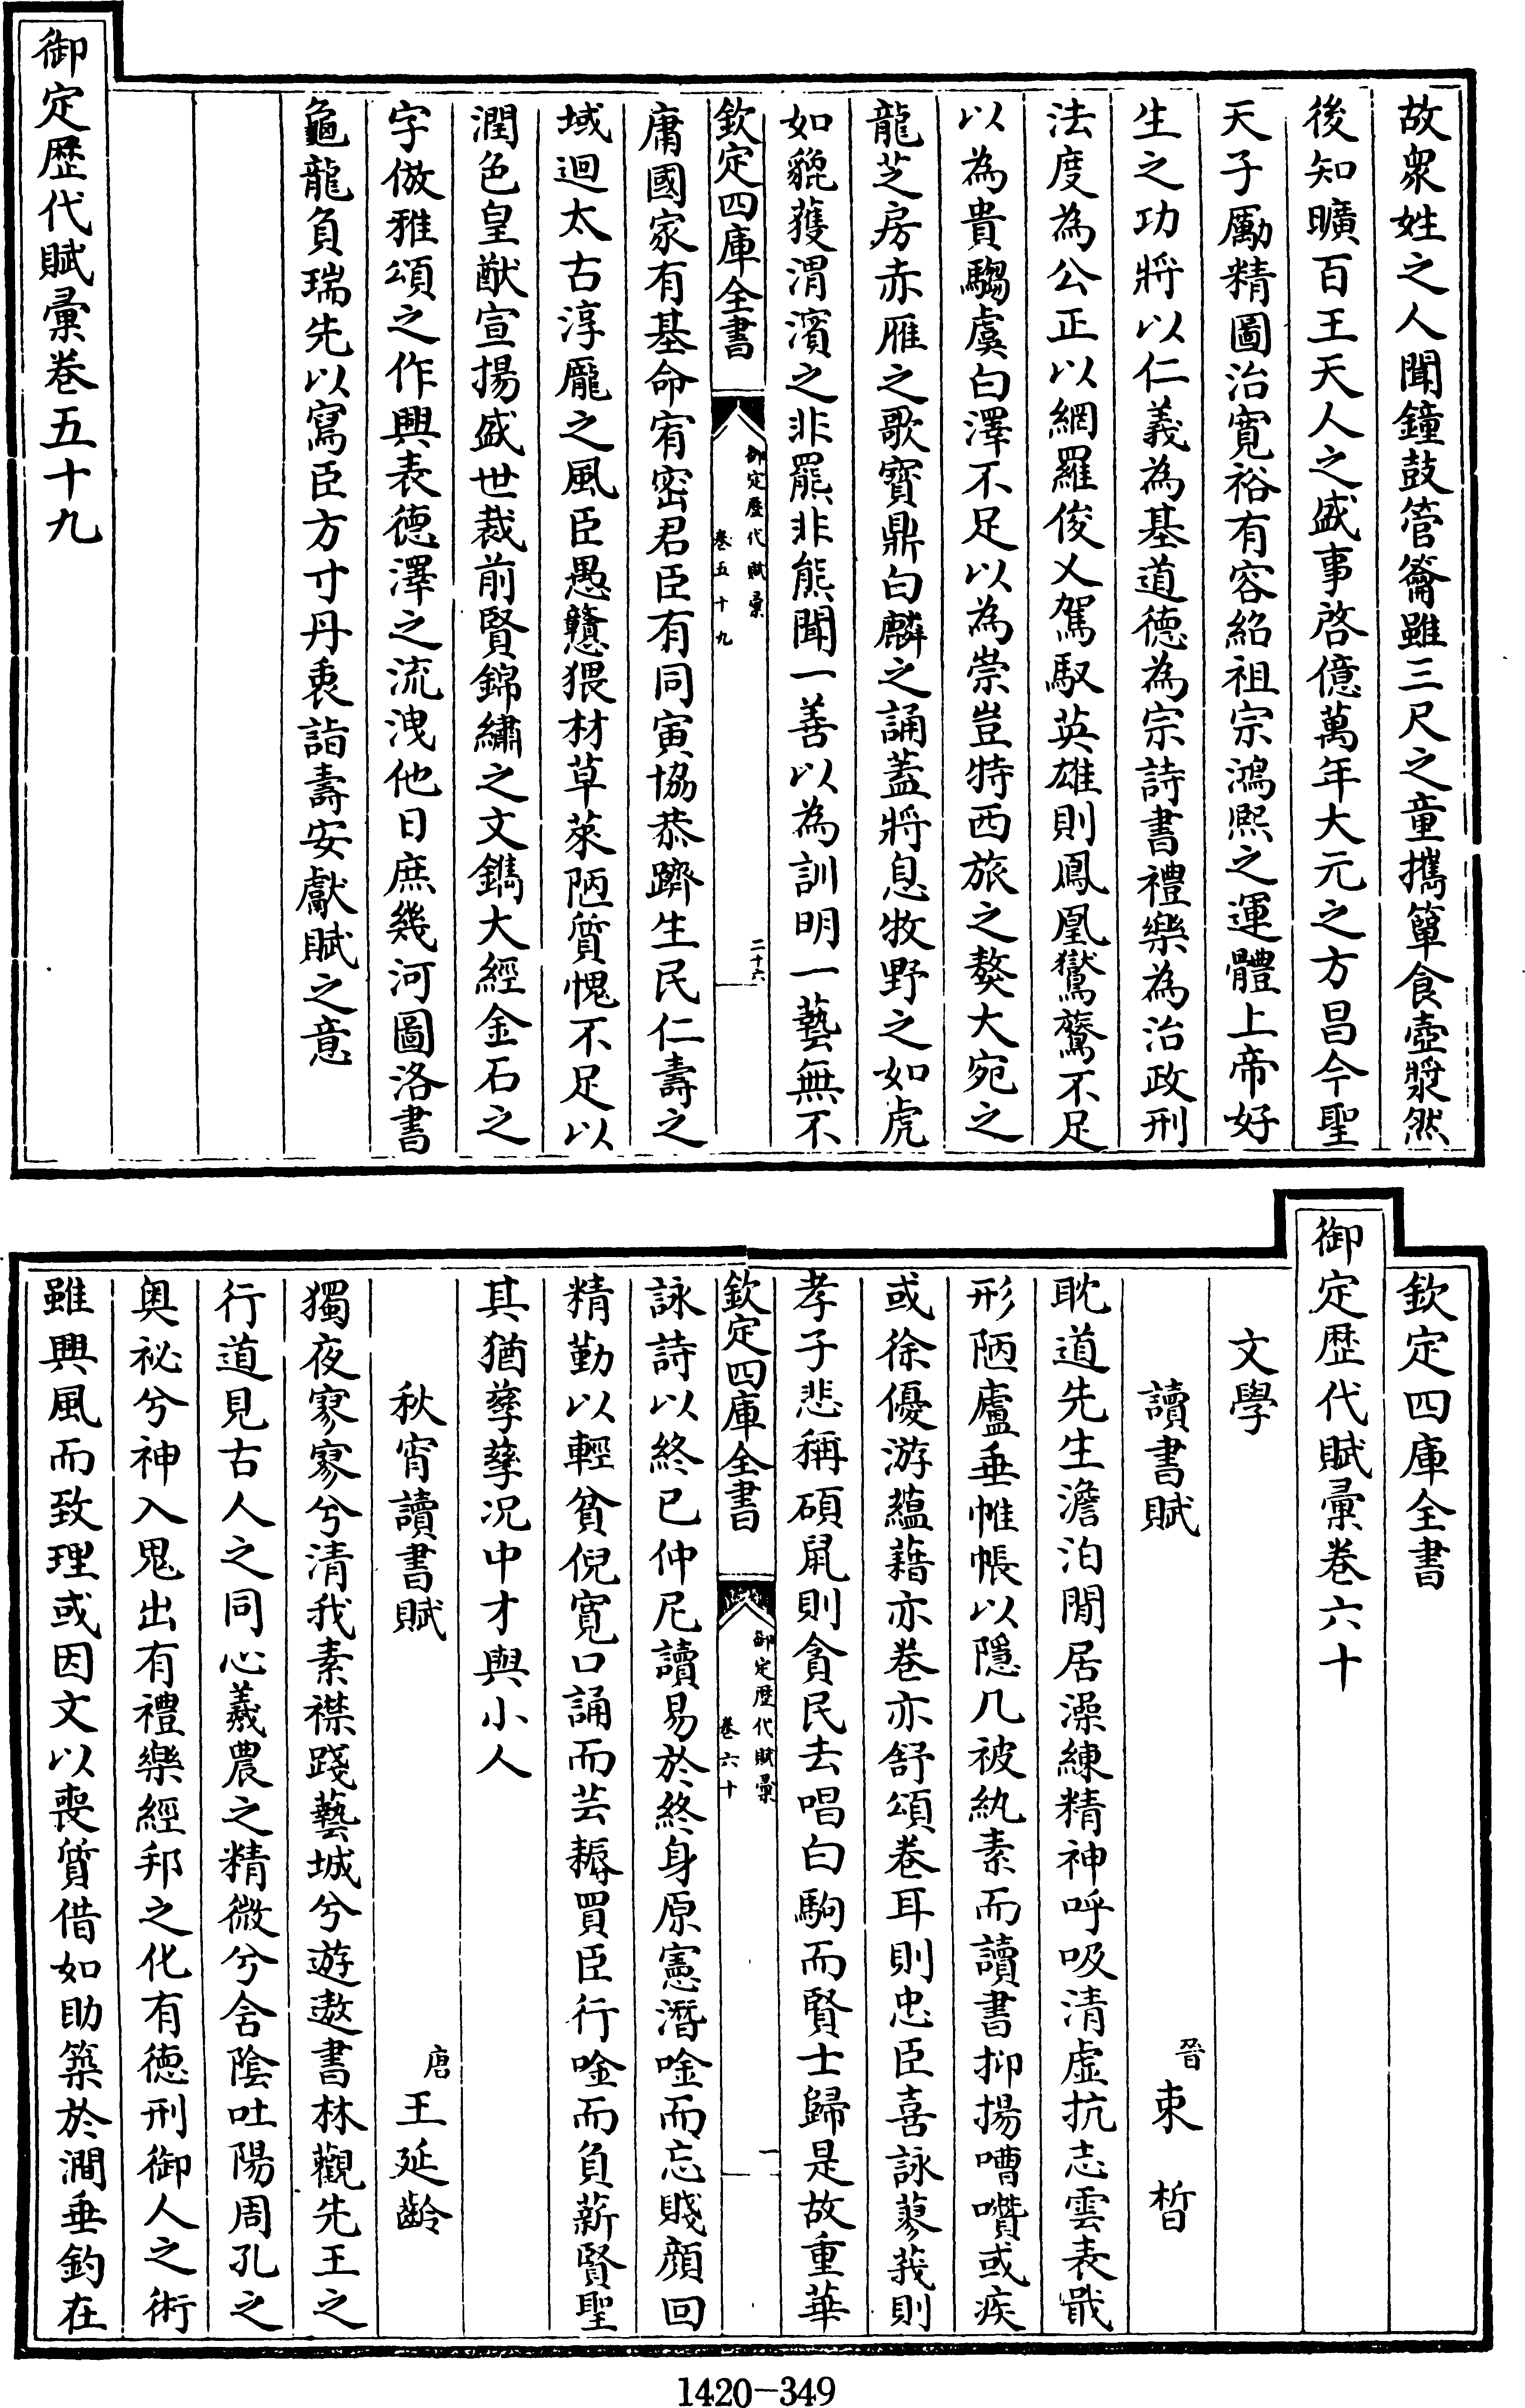 故衆姓之人聞鐘鼓管籥雖三尺之童攜簞食壺漿然
後知曠百王天人之盛事啓億萬年大元之方昌今聖
天子勵精圖治寛裕有容紹祖宗鴻熙之運體上帝好
生之功將以仁義為基道德為宗詩書禮樂為治政刑
法度為公正以網羅俊乂駕馭英雄則鳳凰鸑鷟不足
以為貴騶虞白澤不足以為崇豈特西旅之獒大宛之
龍芝房赤雁之歌寶鼎白麟之誦蓋將息牧野之如虎
如貔獲渭濱之非羆非熊聞一善以為訓明一藝無不
欽定四庫全書
御定歷代賦彙
卷五十九
二十六
庸國家有基命宥密君臣有同寅協恭躋生民仁壽之
域迴太古淳龎之風臣愚戇猥材草萊陋質愧不足以
潤色皇猷宣揚盛世裁前賢錦繡之文鐫大經金石之
字倣雅頌之作興表德澤之流洩他日庶幾河圖洛書
龜龍負瑞先以寫臣方寸丹衷詣壽安獻賦之意
御定歷代賦彙卷五十九
欽定四庫全書
御定歷代賦彙卷六十
文學
讀書賦
晉
束晳
耽道先生澹泊閒居澡練精神呼吸清虛抗志雲表戢
形陋廬垂帷帳以隱几被紈素而讀書抑揚嘈囋或疾
或徐優游蘊藉亦卷亦舒頌卷耳則忠臣喜詠蓼莪則
孝子悲稱碩鼠則貪民去唱白駒而賢士歸是故重華
欽定四庫全書
御定歷代賦彙
卷六十
一
詠詩以終已仲尼讀易於終身原憲潛唫而忘賤顔回
精勤以輕貧倪寛口誦而芸耨買臣行唫而負薪賢聖
其猶孳孳况中才與小人
秋宵讀書賦
唐
王延齡
獨夜寥寥兮清我素襟踐藝城兮遊遨書林觀先王之
行道見古人之同心羲農之精微兮含陰吐陽周孔之
奥祕兮神入鬼出有禮樂經邦之化有德刑御人之術
雖興風而致理或因文以喪質借如助築於澗垂釣在
1420-349